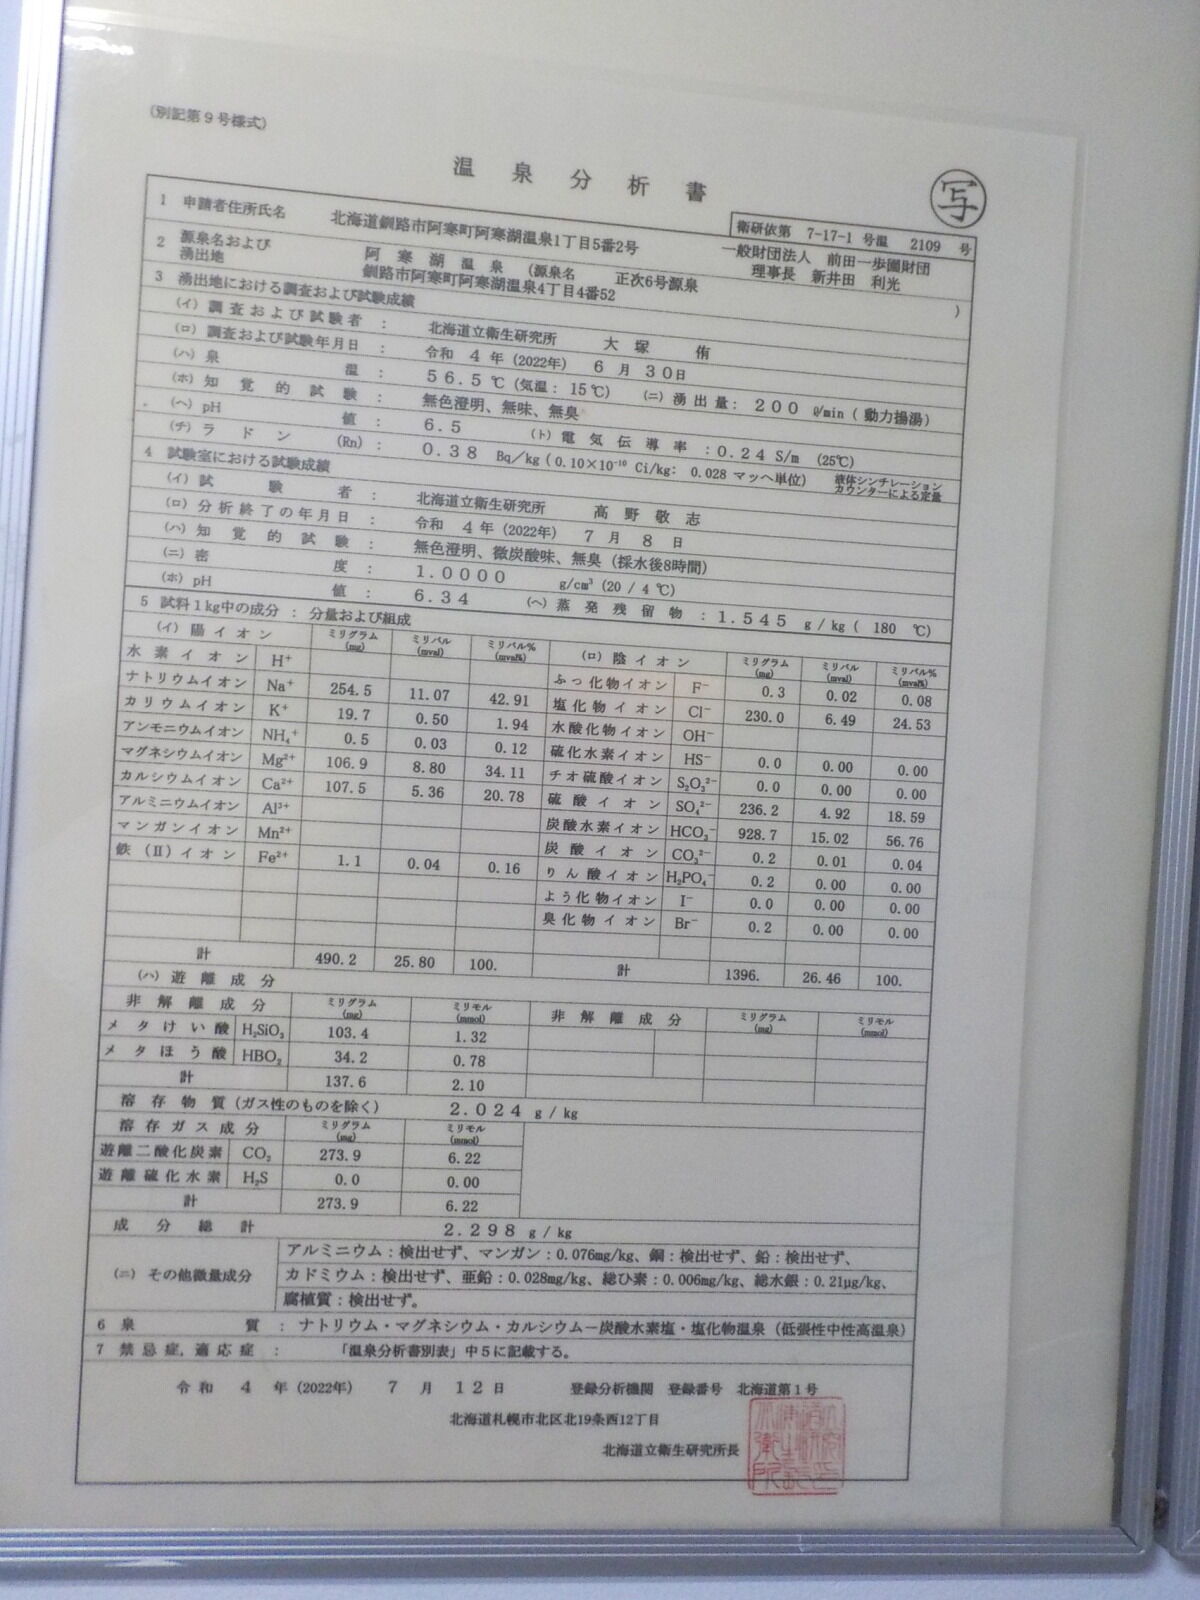 (別記第9号様式)
温泉分析書
写
衛研依第 7-17-1 号温 2109 号
1 申請者住所氏名 北海道釧路市阿寒町阿寒湖温泉1丁目5番2号 一般財団法人 前田一歩園財団
理事長 新井田 利光
2 源泉名および湧出地 阿寒湖温泉 (源泉名 正次6号源泉 )
釧路市阿寒町阿寒湖温泉4丁目4番52
3 湧出地における調査および試験成績
(イ) 調査および試験者 : 北海道立衛生研究所 大塚 侑
(ロ) 調査および試験年月日 : 令和 4 年 (2022年) 6 月 30日
(ハ) 泉温 : 56.5 ℃ (気温: 15℃) (ニ) 湧出量: 200 ℓ/min (動力揚湯)
(ホ) 知覚的試験 : 無色澄明、無味、無臭
(ヘ) pH値 : 6.5 (ト) 電気伝導率 : 0.24 S/m (25℃)
(チ) ラドン (Rn) : 0.38 Bq/kg (0.10×10⁻¹⁰ Ci/kg: 0.028 マッヘ単位) 液体シンチレーションカウンターによる定量
4 試験室における試験成績
(イ) 試験者 : 北海道立衛生研究所 高野敬志
(ロ) 分析終了の年月日 : 令和 4 年 (2022年) 7 月 8 日
(ハ) 知覚的試験 : 無色澄明、微炭酸味、無臭 (採水後8時間)
(ニ) 密度 : 1.0000 g/cm³ (20 / 4 ℃)
(ホ) pH値 : 6.34 (ヘ) 蒸発残留物 : 1.545 g / kg ( 180 ℃)
5 試料1kg中の成分 : 分量および組成
(イ) 陽イオン ミリグラム (mg) ミリバル (mval) ミリバル% (mval%) (ロ) 陰イオン ミリグラム (mg) ミリバル (mval) ミリバル% (mval%)
水素イオン H⁺ ふっ化物イオン F⁻ 0.3 0.02 0.08
ナトリウムイオン Na⁺ 254.5 11.07 42.91 塩化物イオン Cl⁻ 230.0 6.49 24.53
カリウムイオン K⁺ 19.7 0.50 1.94 水酸化物イオン OH⁻
アンモニウムイオン NH₄⁺ 0.5 0.03 0.12 硫化水素イオン HS⁻ 0.0 0.00 0.00
マグネシウムイオン Mg²⁺ 106.9 8.80 34.11 チオ硫酸イオン S₂O₃²⁻ 0.0 0.00 0.00
カルシウムイオン Ca²⁺ 107.5 5.36 20.78 硫酸イオン SO₄²⁻ 236.2 4.92 18.59
アルミニウムイオン Al³⁺ 炭酸水素イオン HCO₃⁻ 928.7 15.02 56.76
マンガンイオン Mn²⁺ 炭酸イオン CO₃²⁻ 0.2 0.01 0.04
鉄(II)イオン Fe²⁺ 1.1 0.04 0.16 りん酸イオン H₂PO₄⁻ 0.2 0.00 0.00
よう化物イオン I⁻ 0.0 0.00 0.00
臭化物イオン Br⁻ 0.2 0.00 0.00
計 490.2 25.80 100. 計 1396. 26.46 100.
(ハ) 遊離成分
非解離成分 ミリグラム (mg) ミリモル (mmol) 非解離成分 ミリグラム (mg) ミリモル (mmol)
メタけい酸 H₂SiO₃ 103.4 1.32
メタほう酸 HBO₂ 34.2 0.78
計 137.6 2.10
溶存物質(ガス性のものを除く) 2.024 g / kg
溶存ガス成分 ミリグラム (mg) ミリモル (mmol)
遊離二酸化炭素 CO₂ 273.9 6.22
遊離硫化水素 H₂S 0.0 0.00
計 273.9 6.22
成分総計 2.298 g / kg
(ニ) その他微量成分 アルミニウム:検出せず、マンガン:0.076mg/kg、銅:検出せず、鉛:検出せず、
カドミウム:検出せず、亜鉛:0.028mg/kg、総ひ素:0.006mg/kg、総水銀:0.21μg/kg、
腐植質:検出せず。
6 泉質 : ナトリウム・マグネシウム・カルシウム−炭酸水素塩・塩化物温泉 (低張性中性高温泉)
7 禁忌症,適応症 : 「温泉分析書別表」中5に記載する。
令和 4 年 (2022年) 7 月 12 日 登録分析機関 登録番号 北海道第1号
北海道札幌市北区北19条西12丁目
北海道立衛生研究所長